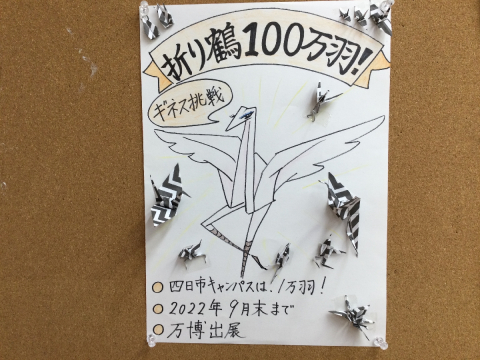 折り鶴100万羽!
ギネス挑戦
四日市キャンパスは、1万羽!
2022年9月末まで
万博出展